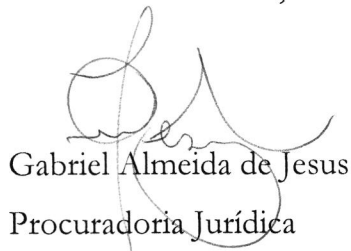 Gabriel Almeida de Jesus
Procuradoria Jurídica